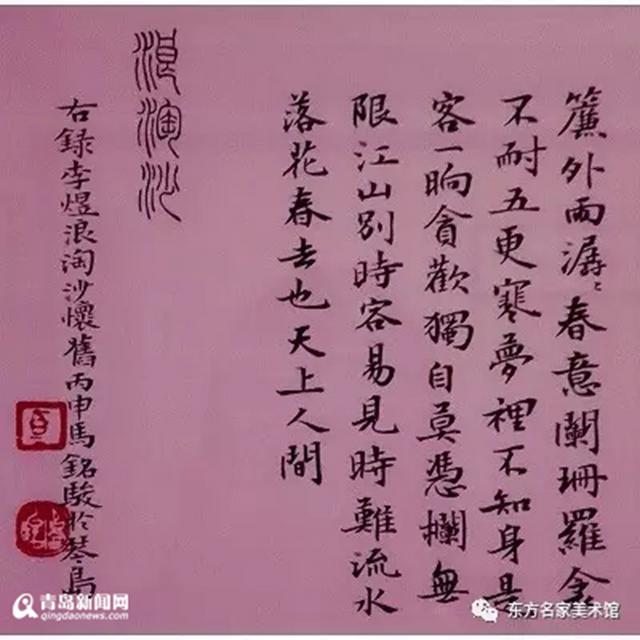 簾外雨潺〻春意闌珊羅衾
不耐五更寒夢裡不知身是
客一晌貪歡獨自莫憑欄無
限江山別時容易見時難流水
落花春去也天上人間
浪淘沙
右錄李煜浪淘沙懷舊丙申馬銘駿於琴島
青岛新闻网
qingdaonews.com
东方名家美术馆